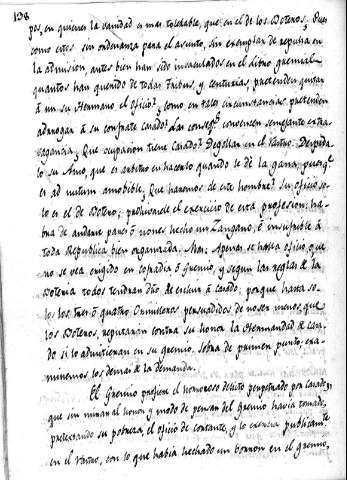 198
pos, en quienes la vanidad es mas tolerable, que en el de los Boteros; Pues
como estos sin ordenanza para el asunto, sin exemplar de repulsa en
la admision, antes bien han sido insaculados en el libro gremial
quantos han querido de todas Tribus, y centurias, pretenden quitar
à un su Hermano el oficio? como en tales circunstancias pretenden
à su confrate Casado? Las conseq.s convencen semejante extra-
vagancia; Que ocupacion tiene Casado? Degollar en el Rastro. Despida-
lo su Amo, que es arbitro en hacerlo quando le dè la gana, porq.e
es ad nutum amobible; Que haremos de este hombre? Su oficio so-
lo es el de Botero; prohivasele el exercicio de esta profesion; ha-
brà de andarse hecho un Zangano, è insufrible à
toda Republica bien organizada. Mas: Apenas se halla oficio, que
no se vea erigido en cofradia ò Gremio, y segun las reglas de la
Boteria todos tendran dro de excluir à Casado; porque hasta so-
los tres ò quatro persuadidos de no ser menos, que
los Boteros, reputaran contra su honor la Hermandad de Casa-
do si lo admitiesen en su gremio. Sobra de primer punto; exa-
minemos los demas de la demanda.
El Gremio profiere el horroroso delito perpetrado por Casado,
que sin mirar al honor y modo de pensar del Gremio havia tomado,
pretextando su pobreza, el oficio de cortante, y lo exercia publicam.te
en el Rastro, con lo que havia hechado un borron en el Gremio,